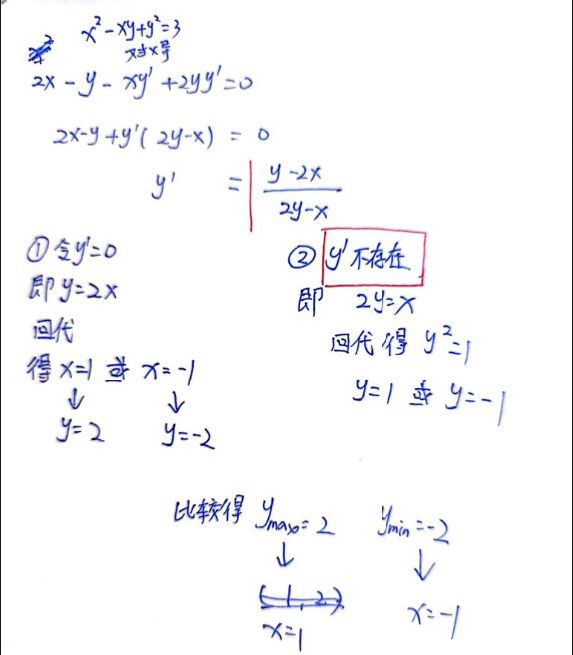 x²-xy+y²=3
对x求导
2x-y-xy'+2yy'=0
2x-y+y'(2y-x)=0
y' = (y-2x)/(2y-x)
①令y'=0
即y=2x
回代
得x=1或x=-1
↓ ↓
y=2 y=-2
② y'不存在
即 2y=x
回代得 y²=1
y=1 或 y=-1
比较得 ymax=2 ymin=-2
↓ ↓
x=1 x=-1